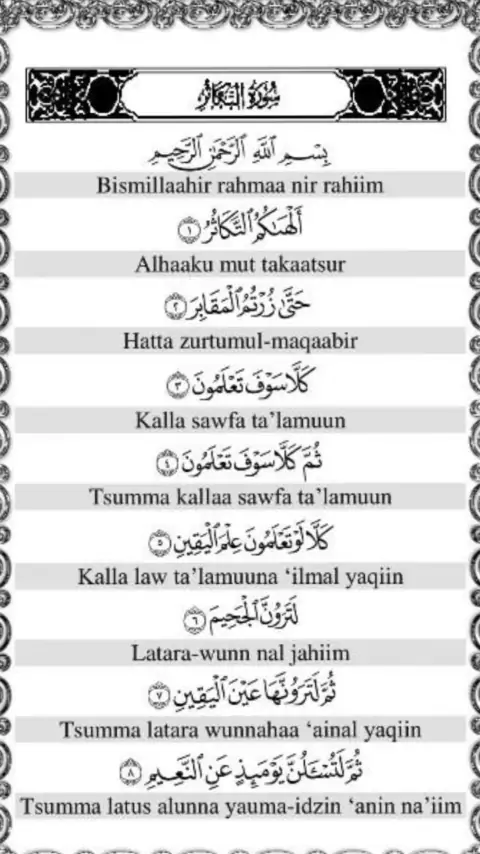 سُورَةُ التَّكَاثُرِ
بِسْمِ ٱللَّهِ ٱلرَّحْمَٰنِ ٱلرَّحِيمِ
Bismillaahir rahmaa nir rahiim
أَلْهَىٰكُمُ ٱلتَّكَاثُرُ ١
Alhaaku mut takaatsur
حَتَّىٰ زُرْتُمُ ٱلْمَقَابِرَ ٢
Hatta zurtumul-maqaabir
كَلَّا سَوْفَ تَعْلَمُونَ ٣
Kalla sawfa ta’lamuun
ثُمَّ كَلَّا سَوْفَ تَعْلَمُونَ ٤
Tsumma kallaa sawfa ta’lamuun
كَلَّا لَوْ تَعْلَمُونَ عِلْمَ ٱلْيَقِينِ ٥
Kalla law ta’lamuuna ‘ilmal yaqiin
لَتَرَوُنَّ ٱلْجَحِيمَ ٦
Latara-wunn nal jahiim
ثُمَّ لَتَرَوُنَّهَا عَيْنَ ٱلْيَقِينِ ٧
Tsumma latara wunnahaa ‘ainal yaqiin
ثُمَّ لَتُسْـَٔلُنَّ يَوْمَئِذٍ عَنِ ٱلنَّعِيمِ ٨
Tsumma latus alunna yauma-idzin ‘anin na’iim